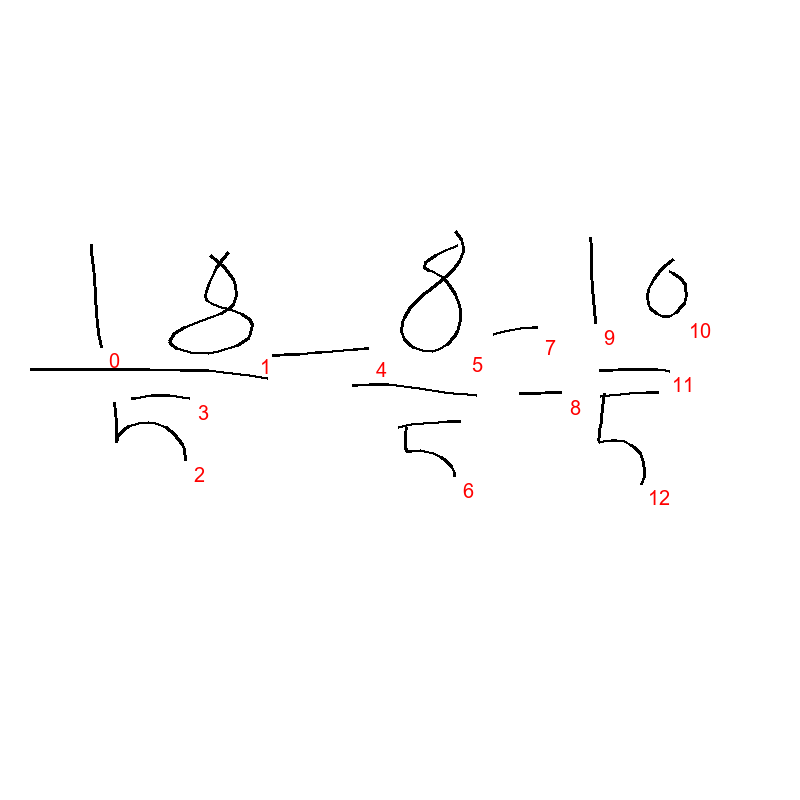 18/5 - 8/5 = 10/5
0
1
2
3
4
5
6
7
8
9
10
11
12